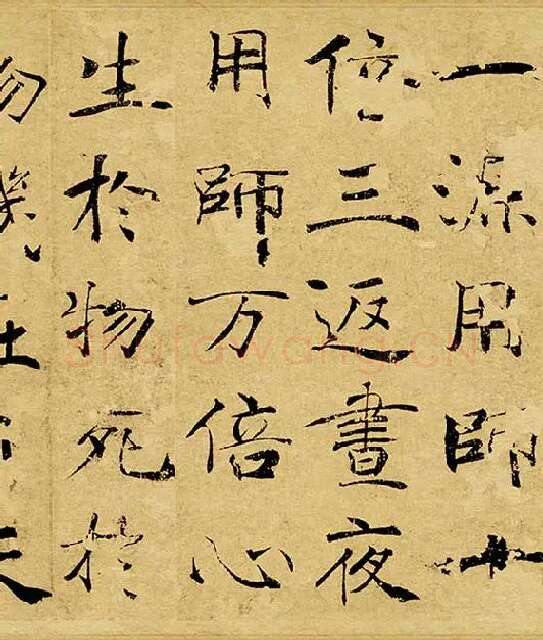 一源用師十
倍三返晝夜
用師万倍心
生於物死於
shufawang.cn